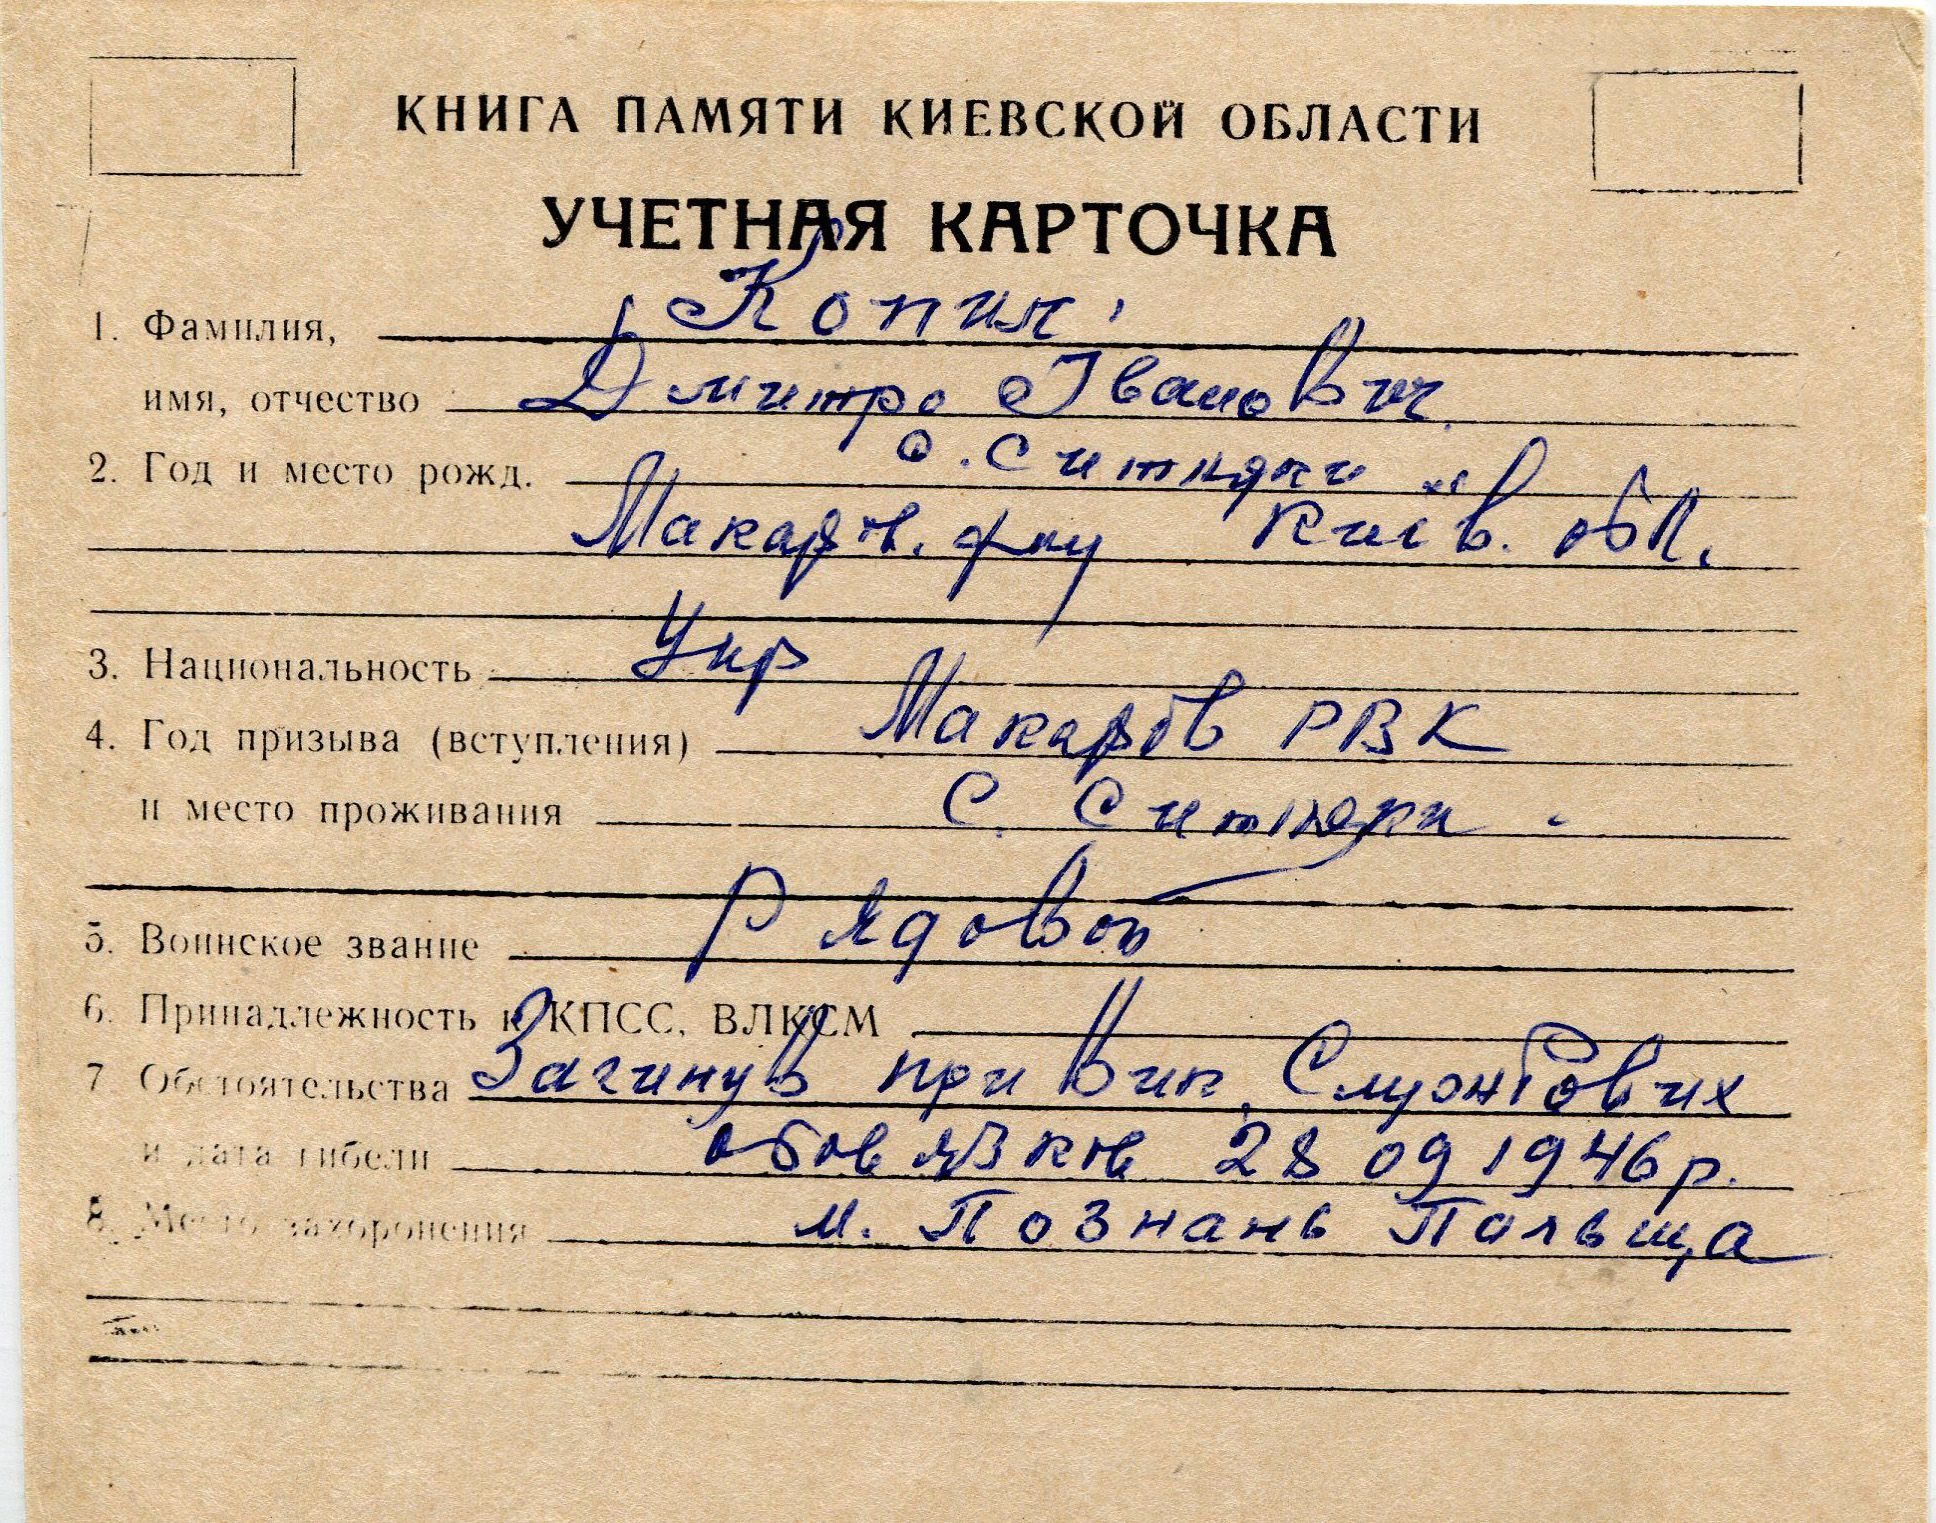 КНИГА ПАМЯТИ КИЕВСКОЙ ОБЛАСТИ
УЧЕТНАЯ КАРТОЧКА
1. Фамилия, Копил
имя, отчество Дмитро Іванович
2. Год и место рожд. с. Ситняки
Макарів. р-ну Київ. обл.
3. Национальность Укр
4. Год призыва (вступления) Макарів РВК
и место проживания С. Ситняки
5. Воинское звание Рядовой
6. Принадлежность к КПСС, ВЛКСМ
7 Обстоятельства Загинув при вик. Службових
и дата гибели обовязків 28 09 1946 р.
8. Место захоронения м. Познань Польща